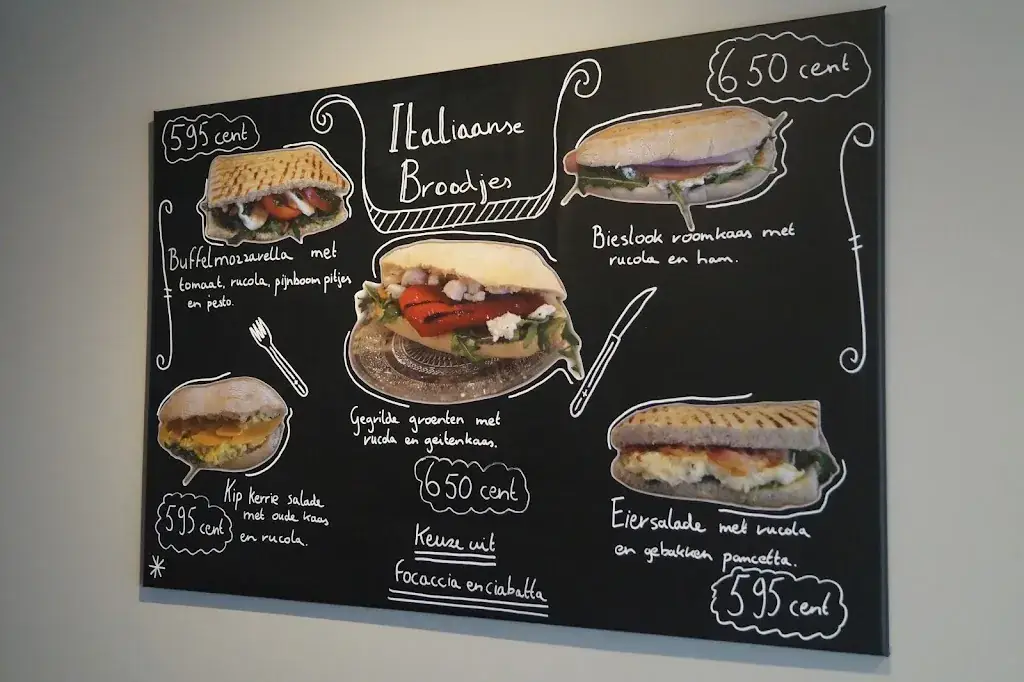 Italiaanse
Broodjes
595 cent
Buffelmozzarella met
tomaat, rucola, pijnboompitjes
en pesto.
650 cent
Bieslook roomkaas met
rucola en ham.
Gegrilde groenten met
rucola en geitenkaas.
650 cent
Kip kerrie salade
met oude kaas
en rucola.
595 cent
Eiersalade met rucola
en gebakken pancetta.
595 cent
Keuze uit
Focaccia en ciabatta